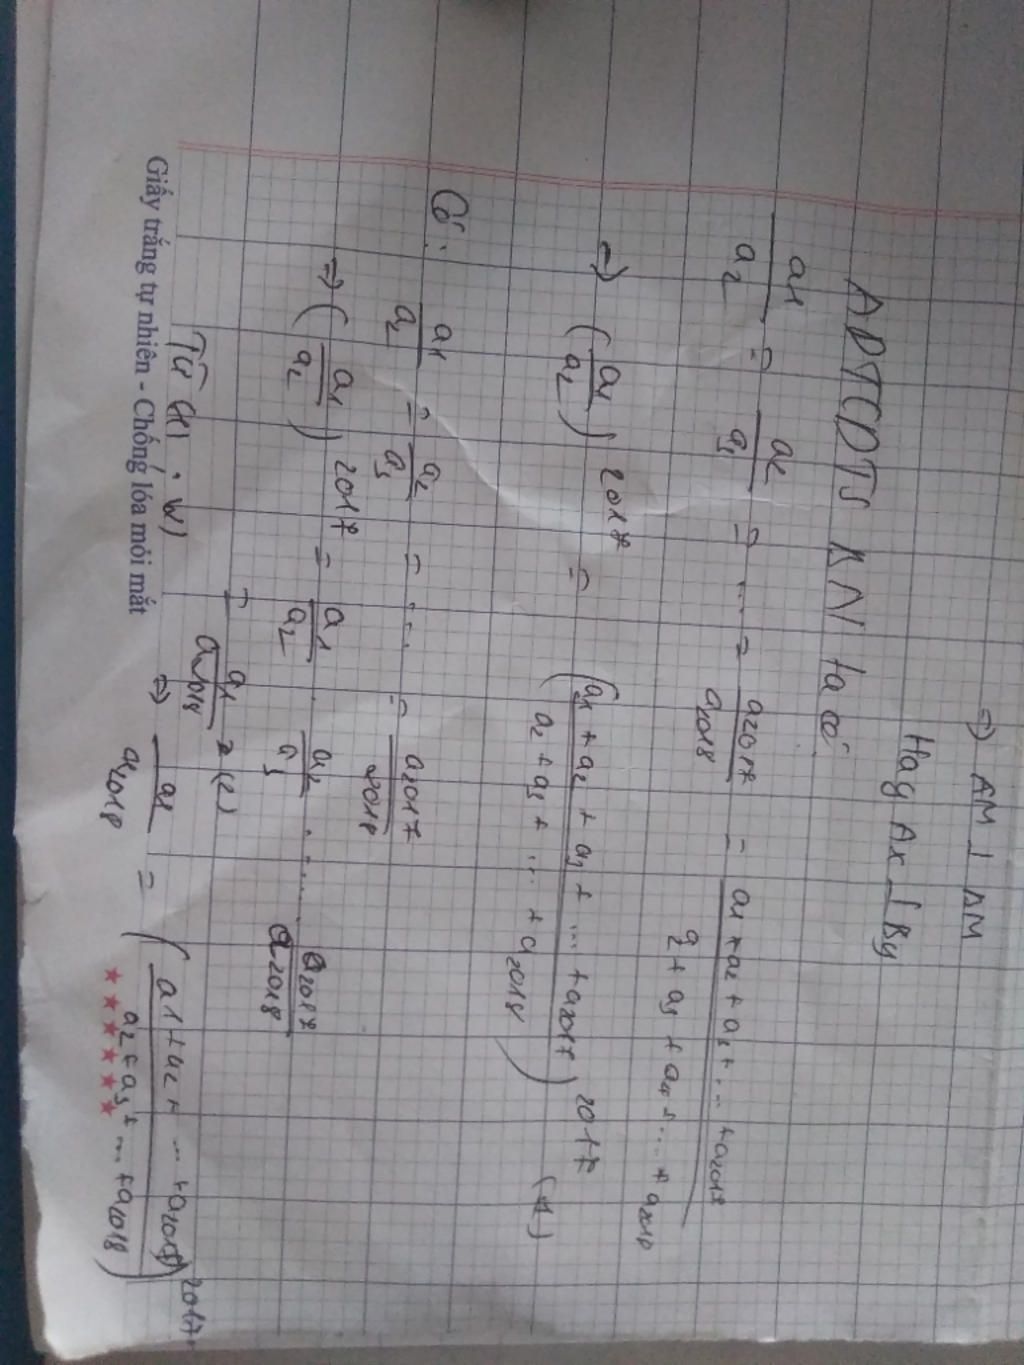 ⇒ AM ⊥ AM
Hay Ax ⊥ By
ADTCDTS BN ta có
a1/a2 = a2/a3 = ... = a2017/a2018 = (a1 + a2 + a3 + ... + a2017)/(a2 + a3 + a4 + ... + a2018)
⇒ (a1/a2)^2017 = ((a1 + a2 + a3 + ... + a2017)/(a2 + a3 + ... + a2018))^2017 (1)
Có: a1/a2 = a2/a3 = ... = a2017/a2018
⇒ (a1/a2)^2017 = a1/a2 . a2/a3 . ... a2017/a2018
= a1/a2018 (2)
Từ (1), (2) ⇒ a1/a2018 = ((a1 + a2 + ... + a2017)/(a2 + a3 + ... + a2018))^2017
Giấy trắng tự nhiên - Chống lóa mỏi mắt